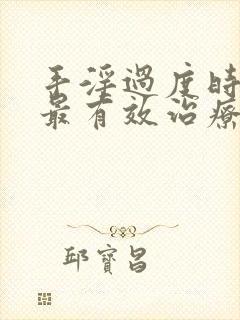 手淫過度時
最有效治療
邱寶昌